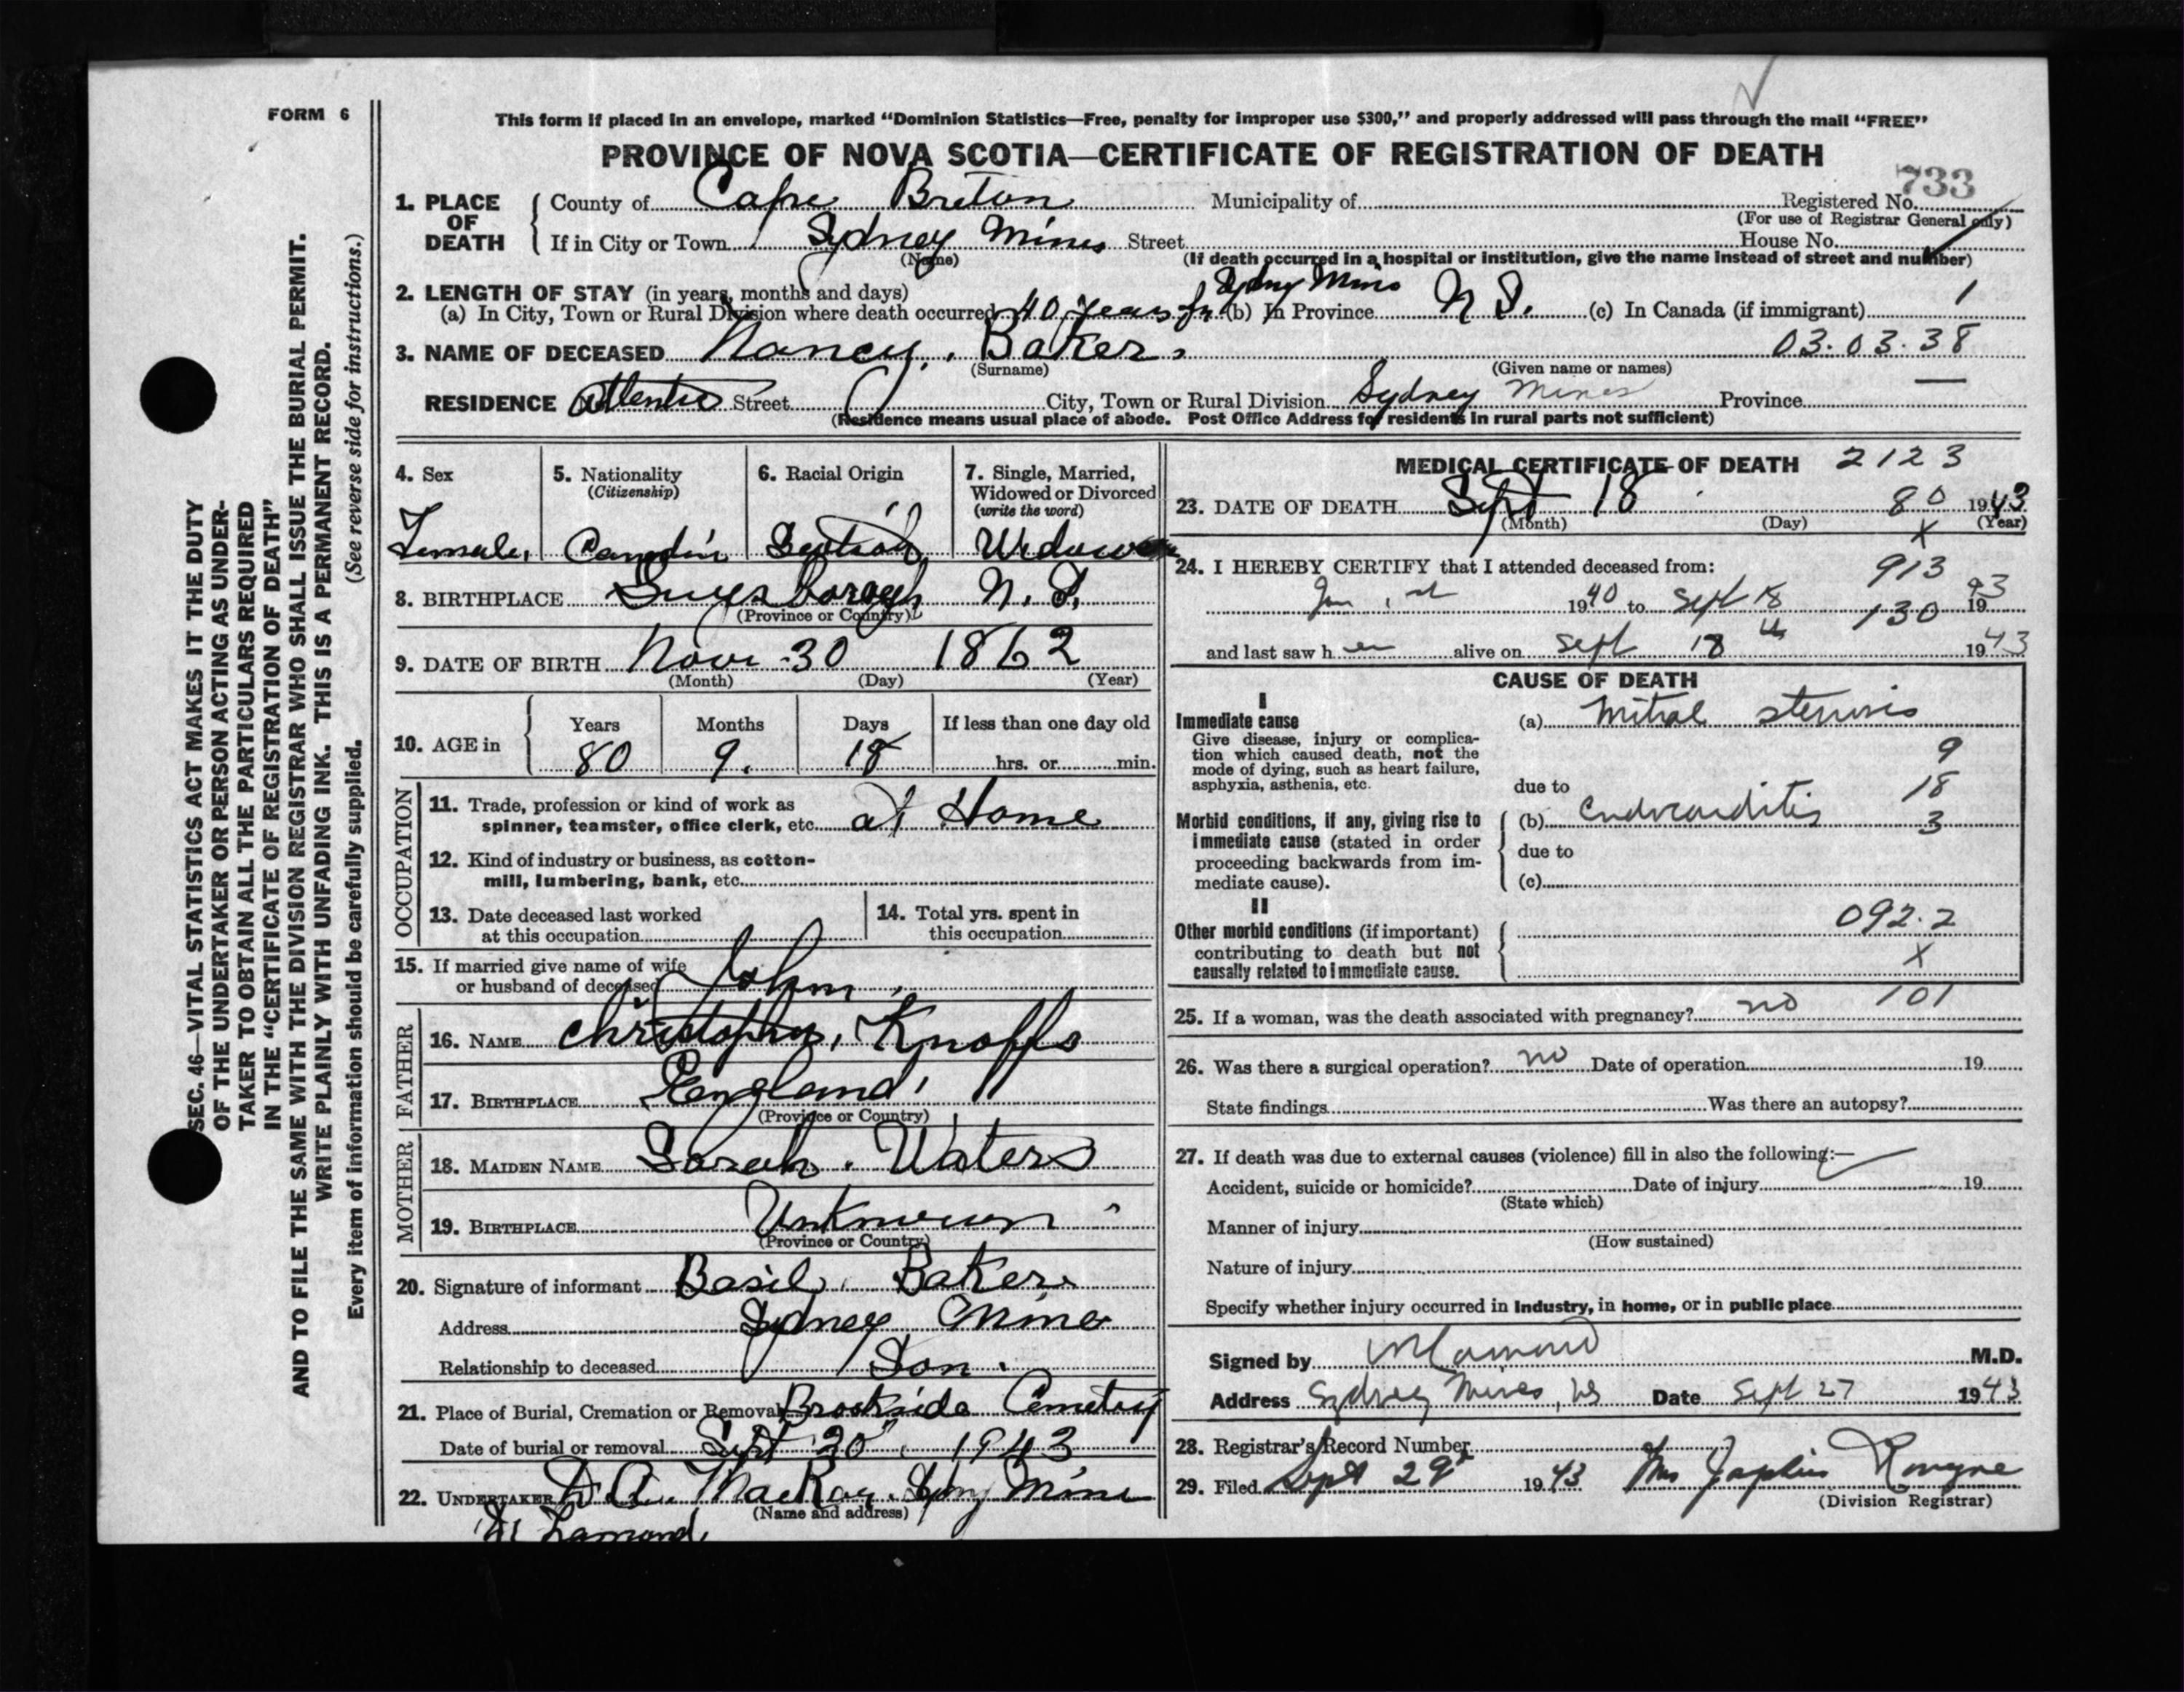 FORM 6
This form if placed in an envelope, marked “Dominion Statistics—Free, penalty for improper use $300,” and properly addressed will pass through the mail “FREE”
PROVINCE OF NOVA SCOTIA—CERTIFICATE OF REGISTRATION OF DEATH
733
1. PLACE OF DEATH County of Cape Breton Municipality of Registered No.
(For use of Registrar General only)
If in City or Town Sydney Mines Street House No.
(Name) (If death occurred in a hospital or institution, give the name instead of street and number)
2. LENGTH OF STAY (in years, months and days) Sydny Mines
(a) In City, Town or Rural Division where death occurred 40 years (b) In Province N S. (c) In Canada (if immigrant) 1
3. NAME OF DECEASED Nancy. Baker. 03.03.38
(Surname) (Given name or names)
RESIDENCE Street City, Town or Rural Division Sydney Mines Province
(Residence means usual place of abode. Post Office Address for residents in rural parts not sufficient)
4. Sex
Female
5. Nationality
(Citizenship)
6. Racial Origin
7. Single, Married, Widowed or Divorced
(write the word)
8. BIRTHPLACE N.S.
(Province or Country)
9. DATE OF BIRTH Nov 30 1862
(Month) (Day) (Year)
10. AGE in Years Months Days If less than one day old
80 9. 18 hrs. or min.
OCCUPATION
11. Trade, profession or kind of work as
spinner, teamster, office clerk, etc. at Home
12. Kind of industry or business, as cotton-
mill, lumbering, bank, etc.
13. Date deceased last worked
at this occupation
14. Total yrs. spent in
this occupation
15. If married give name of wife
or husband of deceased John
FATHER
16. NAME Christopher, Knoffs
17. BIRTHPLACE England
(Province or Country)
MOTHER
18. MAIDEN NAME Sarah. Waters
19. BIRTHPLACE Unknown
(Province or Country)
20. Signature of informant Basil Baker
Address Sydney Mines
Relationship to deceased Son.
21. Place of Burial, Cremation or Removal Brookside Cemetry
Date of burial or removal Sept 20, 1943
22. UNDERTAKER D.A. MacKay. Sydny Mines
(Name and address)
Lamond
MEDICAL CERTIFICATE OF DEATH 2123
23. DATE OF DEATH Sept 18 80 1943
(Month) (Day) (Year)
X
24. I HEREBY CERTIFY that I attended deceased from: 913
Jan 1st 1940 to Sept 18 130 1943
and last saw her alive on Sept 18th 1943
CAUSE OF DEATH
I
Immediate cause (a) Mitral stenosis
Give disease, injury or complica-
tion which caused death, not the 9
mode of dying, such as heart failure,
asphyxia, asthenia, etc. due to 18
Morbid conditions, if any, giving rise to (b) Endocarditis 3
immediate cause (stated in order due to
proceeding backwards from im-
mediate cause). (c)
II
Other morbid conditions (if important) 092.2
contributing to death but not X
causally related to immediate cause.
25. If a woman, was the death associated with pregnancy? no 101
26. Was there a surgical operation? no Date of operation 19
State findings Was there an autopsy?
27. If death was due to external causes (violence) fill in also the following:—
Accident, suicide or homicide? Date of injury 19
(State which)
Manner of injury
(How sustained)
Nature of injury
Specify whether injury occurred in Industry, in home, or in public place
Signed by M.D.
Address Sydney Mines, NS Date Sept 27 1943
28. Registrar's Record Number
29. Filed Sept 29th 1943 Mrs
(Division Registrar)
SEC. 46—VITAL STATISTICS ACT MAKES IT THE DUTY
OF THE UNDERTAKER OR PERSON ACTING AS UNDER-
TAKER TO OBTAIN ALL THE PARTICULARS REQUIRED
IN THE “CERTIFICATE OF REGISTRATION OF DEATH”
AND TO FILE THE SAME WITH THE DIVISION REGISTRAR WHO SHALL ISSUE THE BURIAL PERMIT.
WRITE PLAINLY WITH UNFADING INK. THIS IS A PERMANENT RECORD.
Every item of information should be carefully supplied. (See reverse side for instructions.)